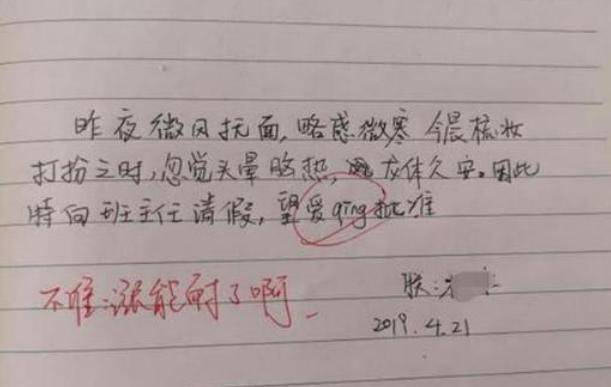 昨夜微风抚面,略感微寒 今晨梳妆
打扮之时,忽觉头晕脸热, 龙体欠安。因此
特向班主任请假,望爱qing批准
不准:涨能耐了啊
朕:
2019.4.21